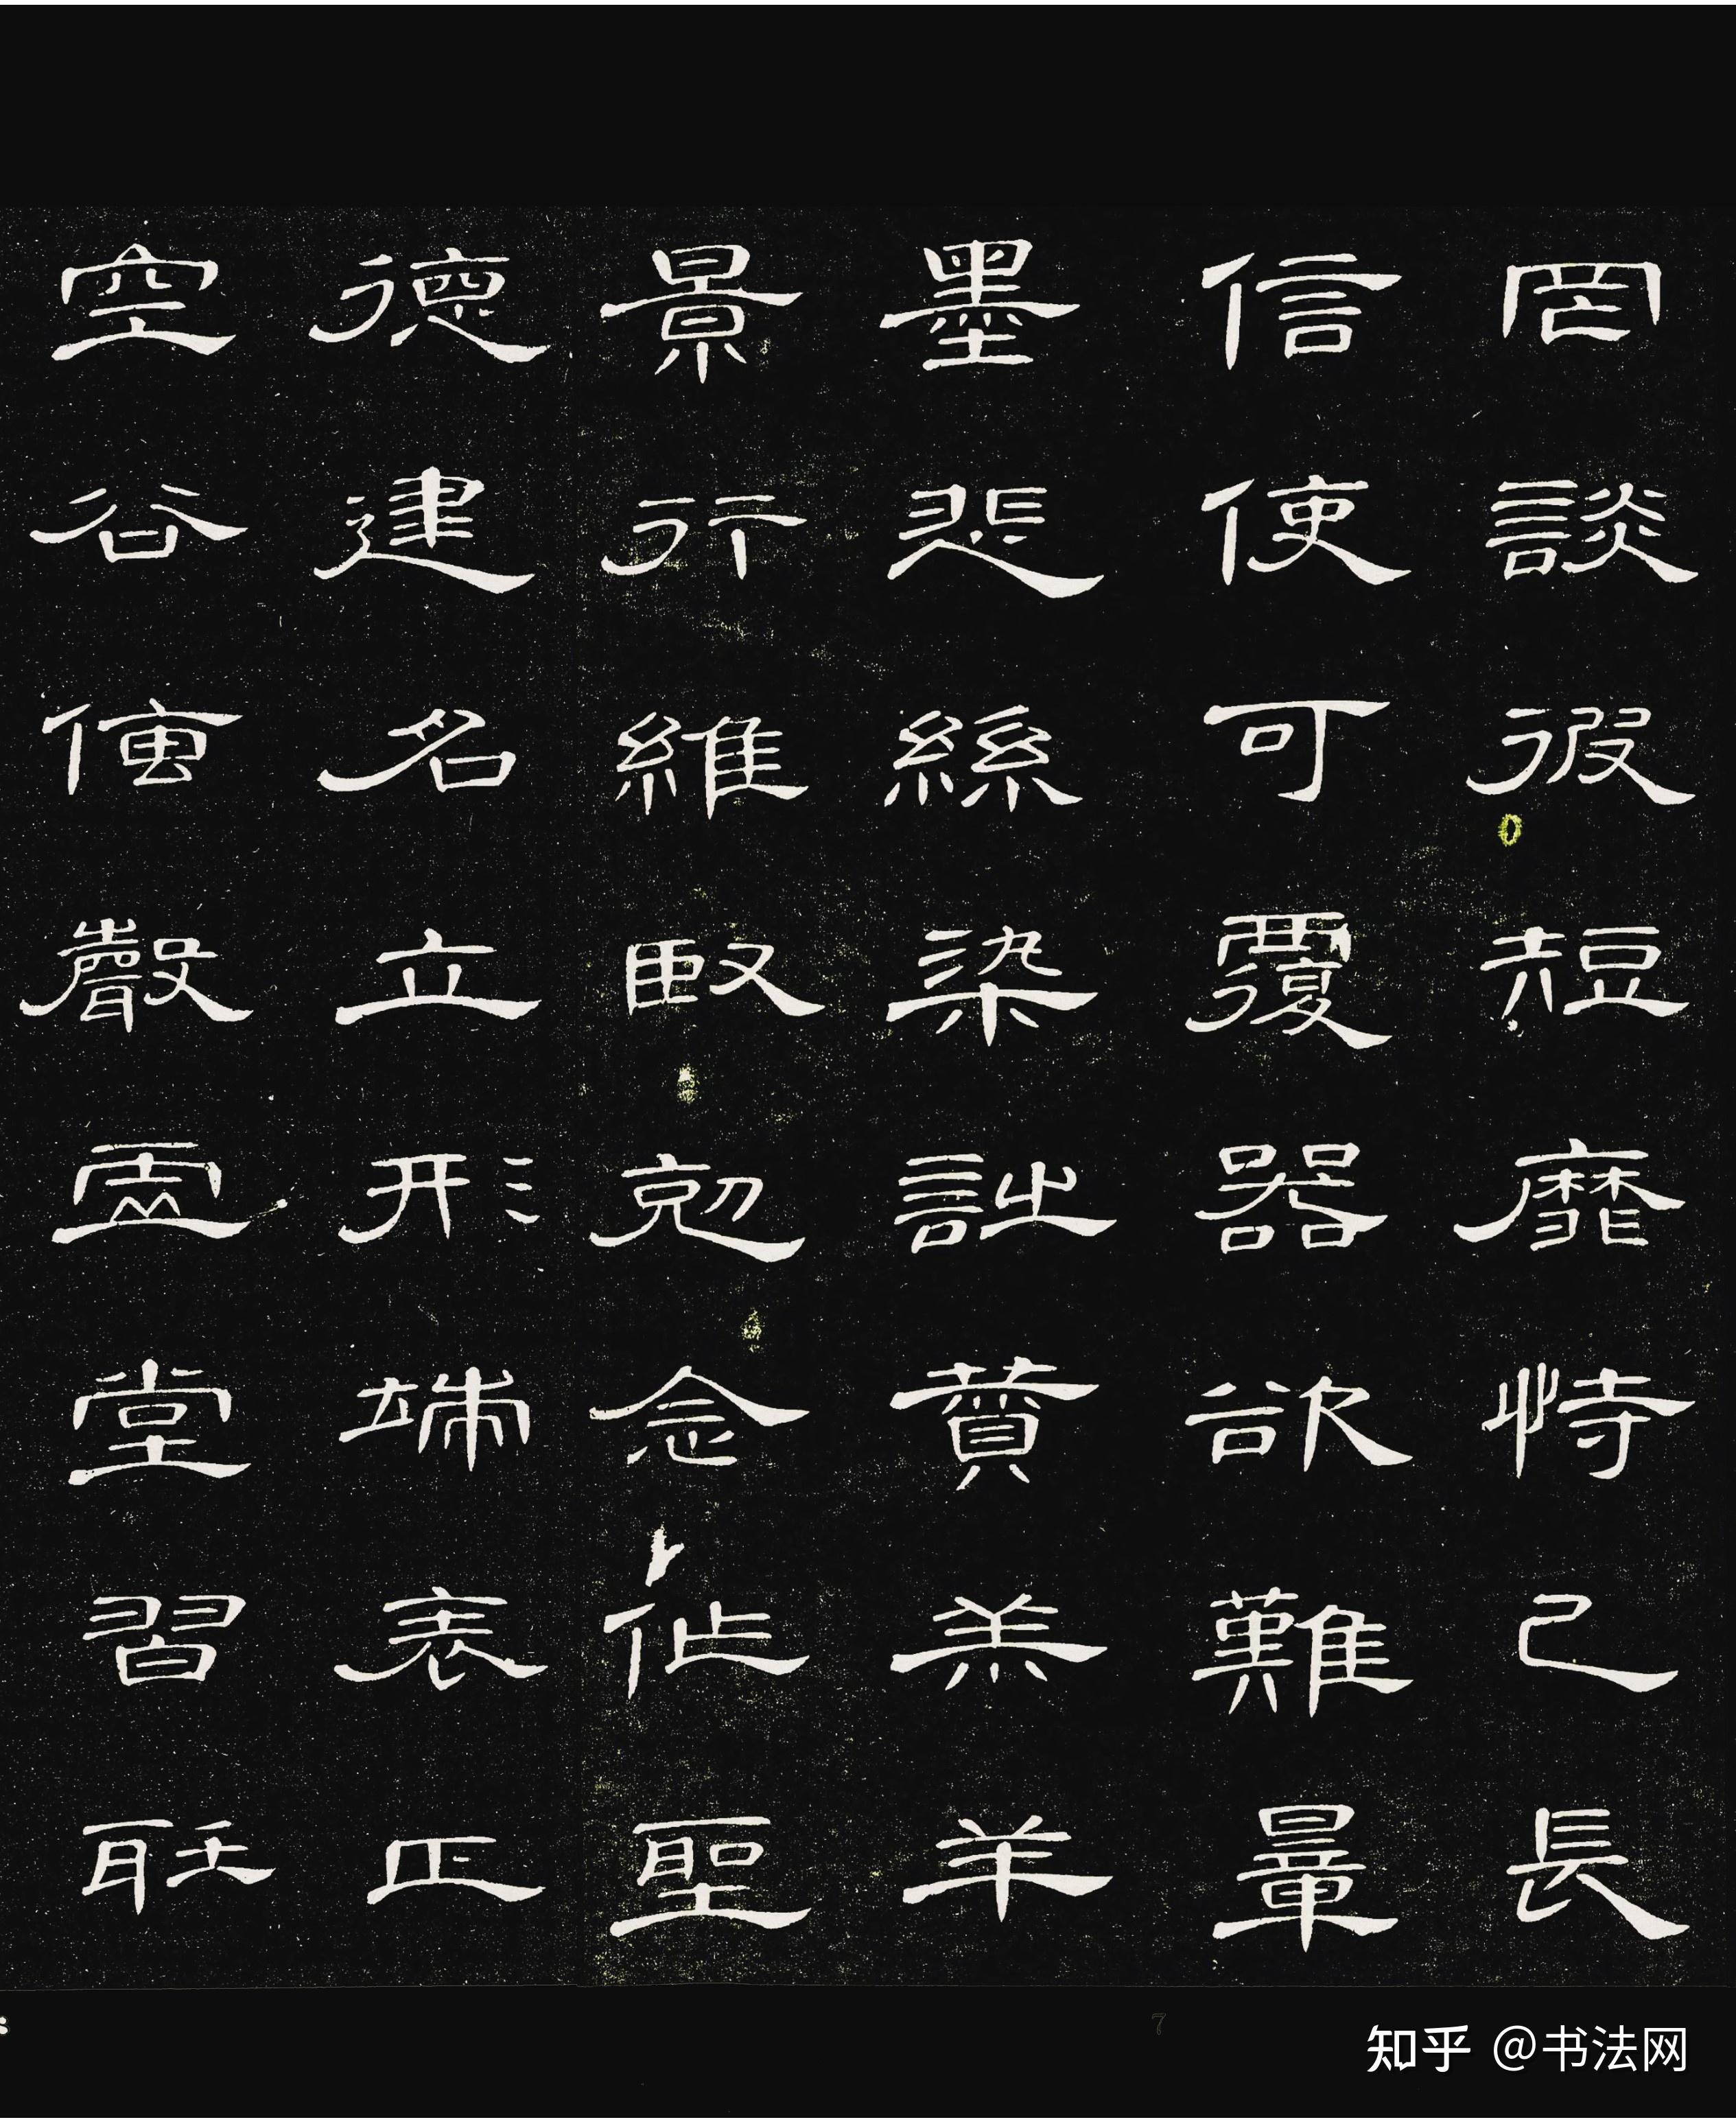 罔談彼短靡恃己長
信使可覆器欲難量
墨悲絲染詩贊羔羊
景行維臤剋念作聖
德建名立形端表正
空谷傳聲虛堂習聽
7
知乎 @书法网